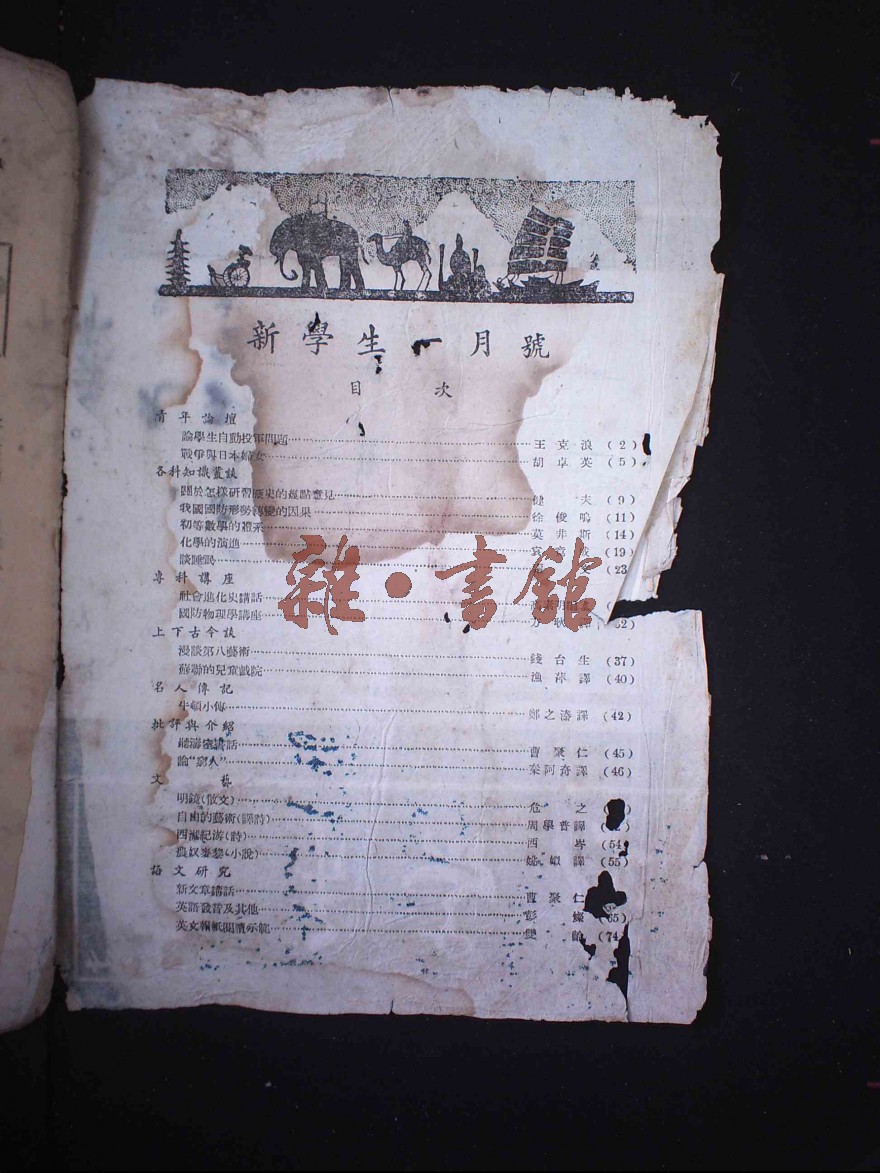 新學生一月號
目次
青年論壇
論學生自動投軍問題 王克浪 (2)
戰爭與日本婦女 胡卓英 (5)
各科知識叢談
關於怎樣研習歷史的幾點意見 健夫 (9)
我國國防形勢轉變的因果 徐俊鳴 (11)
初等數學的體系 莫非斯 (14)
化學的演進 (19)
談睡眠 (23
專科講座
社會進化史講話
國防物理學講座 52)
上下古今談
漫談第八藝術 錢台生 (37)
蘇聯的兒童戲院 漁萍譯 (40)
名人傳記
牛頓小傳 鄭之濤譯 (42)
批評與介紹
聽濤室講話 曹聚仁 (45)
論“窮人” 秦阿奇譯 (46)
文藝
明鏡(散文) 危之
自由的藝術(譯詩) 周學普譯
西湖記游(詩) 西岑 (54)
農奴麥黎(小說) 譯 (55)
語文研究
新文章講話 曹聚仁
英語發音及其他 彭燦 (65)
英文報紙閱讀示範 雙 (74
雜·書館